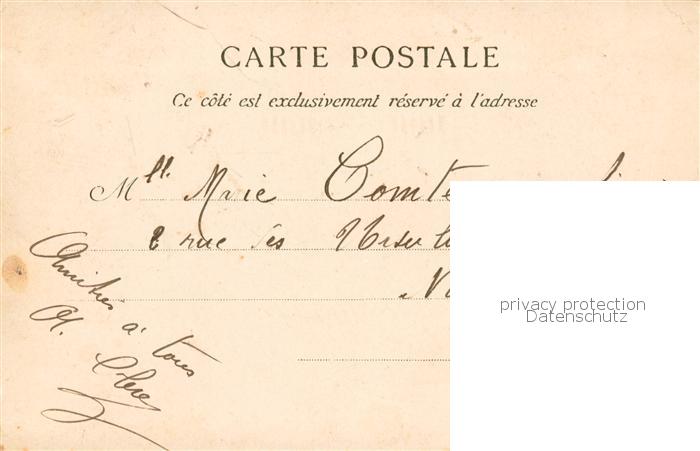 CARTE POSTALE
Ce côté est exclusivement réservé à l'adresse
Mlle Marie Comte
2 rue des Ursul
Amitiés à tous
privacy protection
Datenschutz